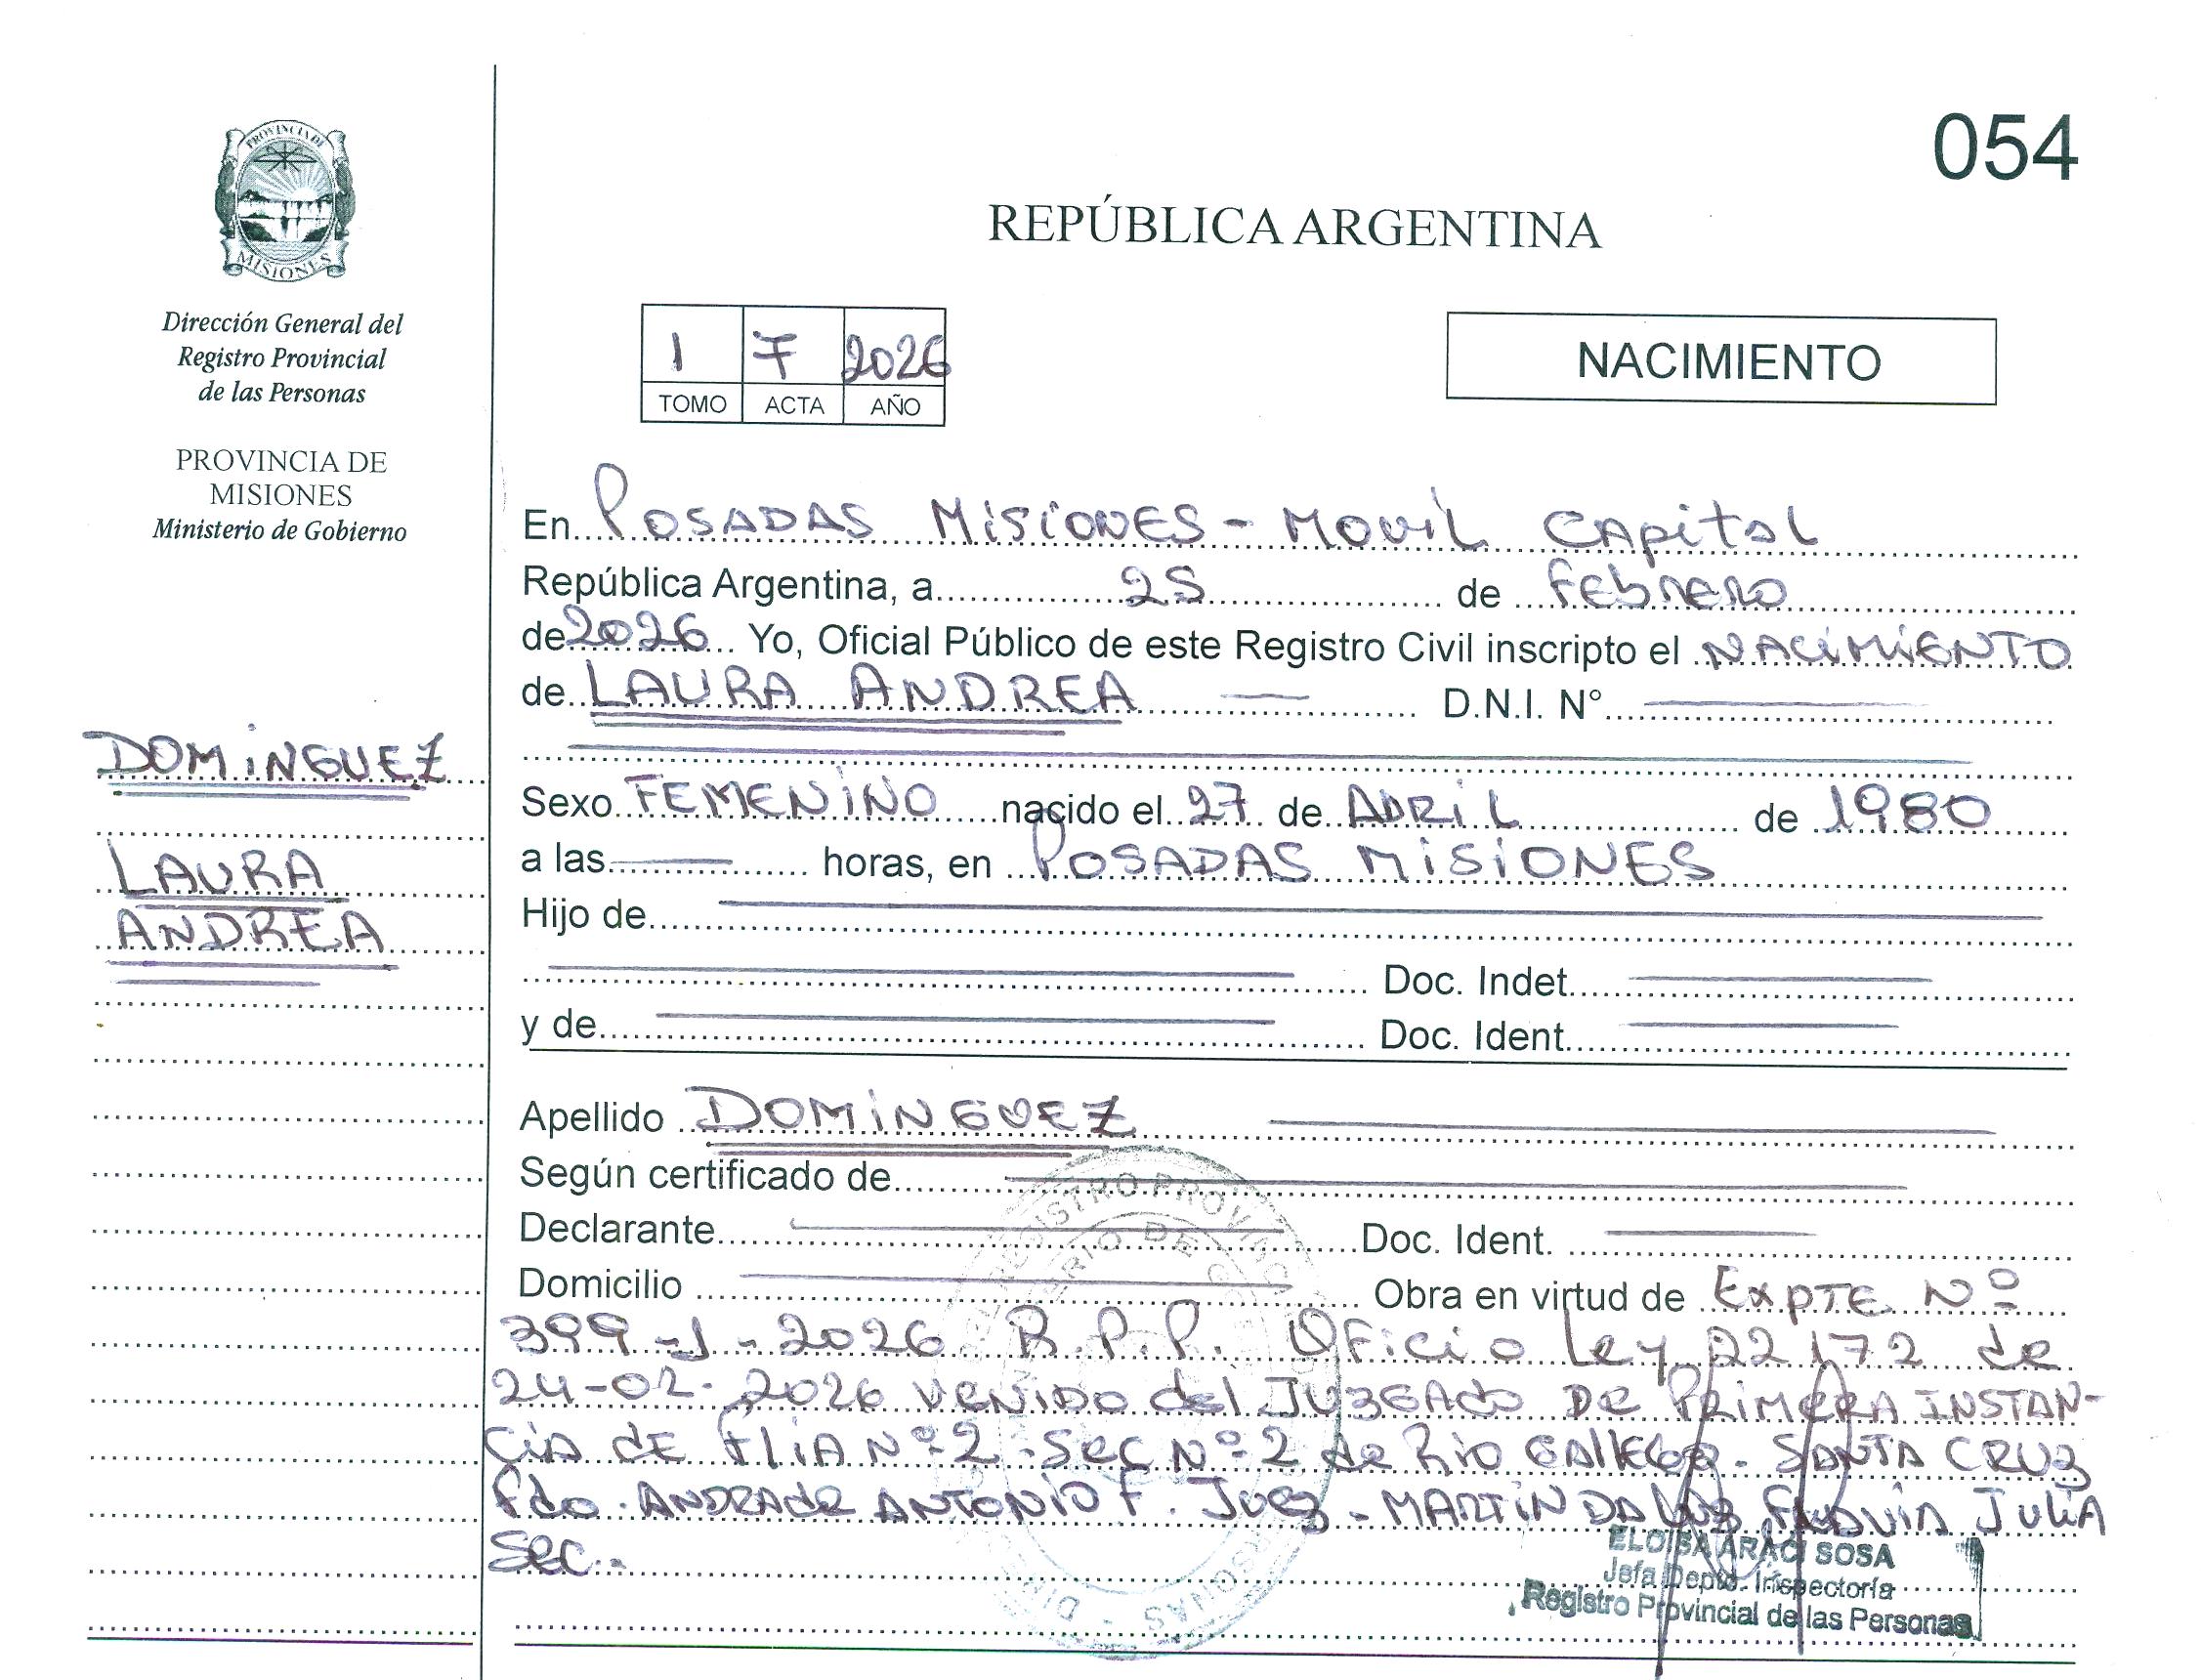 PROVINCIA DE
MISIONES
Dirección General del
Registro Provincial
de las Personas
PROVINCIA DE
MISIONES
Ministerio de Gobierno
DOMiNGUEZ
LAURA
ANDREA
054
REPÚBLICA ARGENTINA
1 7 2026
TOMO ACTA AÑO
NACIMIENTO
En POSADAS MiSiONES - MOViL CApital
República Argentina, a 25 de Febrero
de 2026 Yo, Oficial Público de este Registro Civil inscripto el NACiMiENTO
de LAURA ANDREA D.N.I. N°
Sexo FEMENiNO nacido el 27 de ABRiL de 1980
a las horas, en POSADAS MiSiONES
Hijo de
Doc. Indet.
y de Doc. Ident.
Apellido DOMiNGUEZ
Según certificado de
Declarante Doc. Ident.
Domicilio Obra en virtud de ExpTE Nº
399-J-2026 R.P.P. OFicio Ley 22172 de
24-02-2026 VENiDO del JUZGAdo DE PRiMERA INSTAN-
CiA dE FliA Nº2 - SEC Nº2 de Rio GAllEGO - SANTA CRUZ
Fdo. ANDRAde ANTONiO F. JUEZ - MARTiN DA JULiA
SEC.-
ELOISA ARACI SOSA
Jefa Depto. Inspectoría
Registro Provincial de las Personas